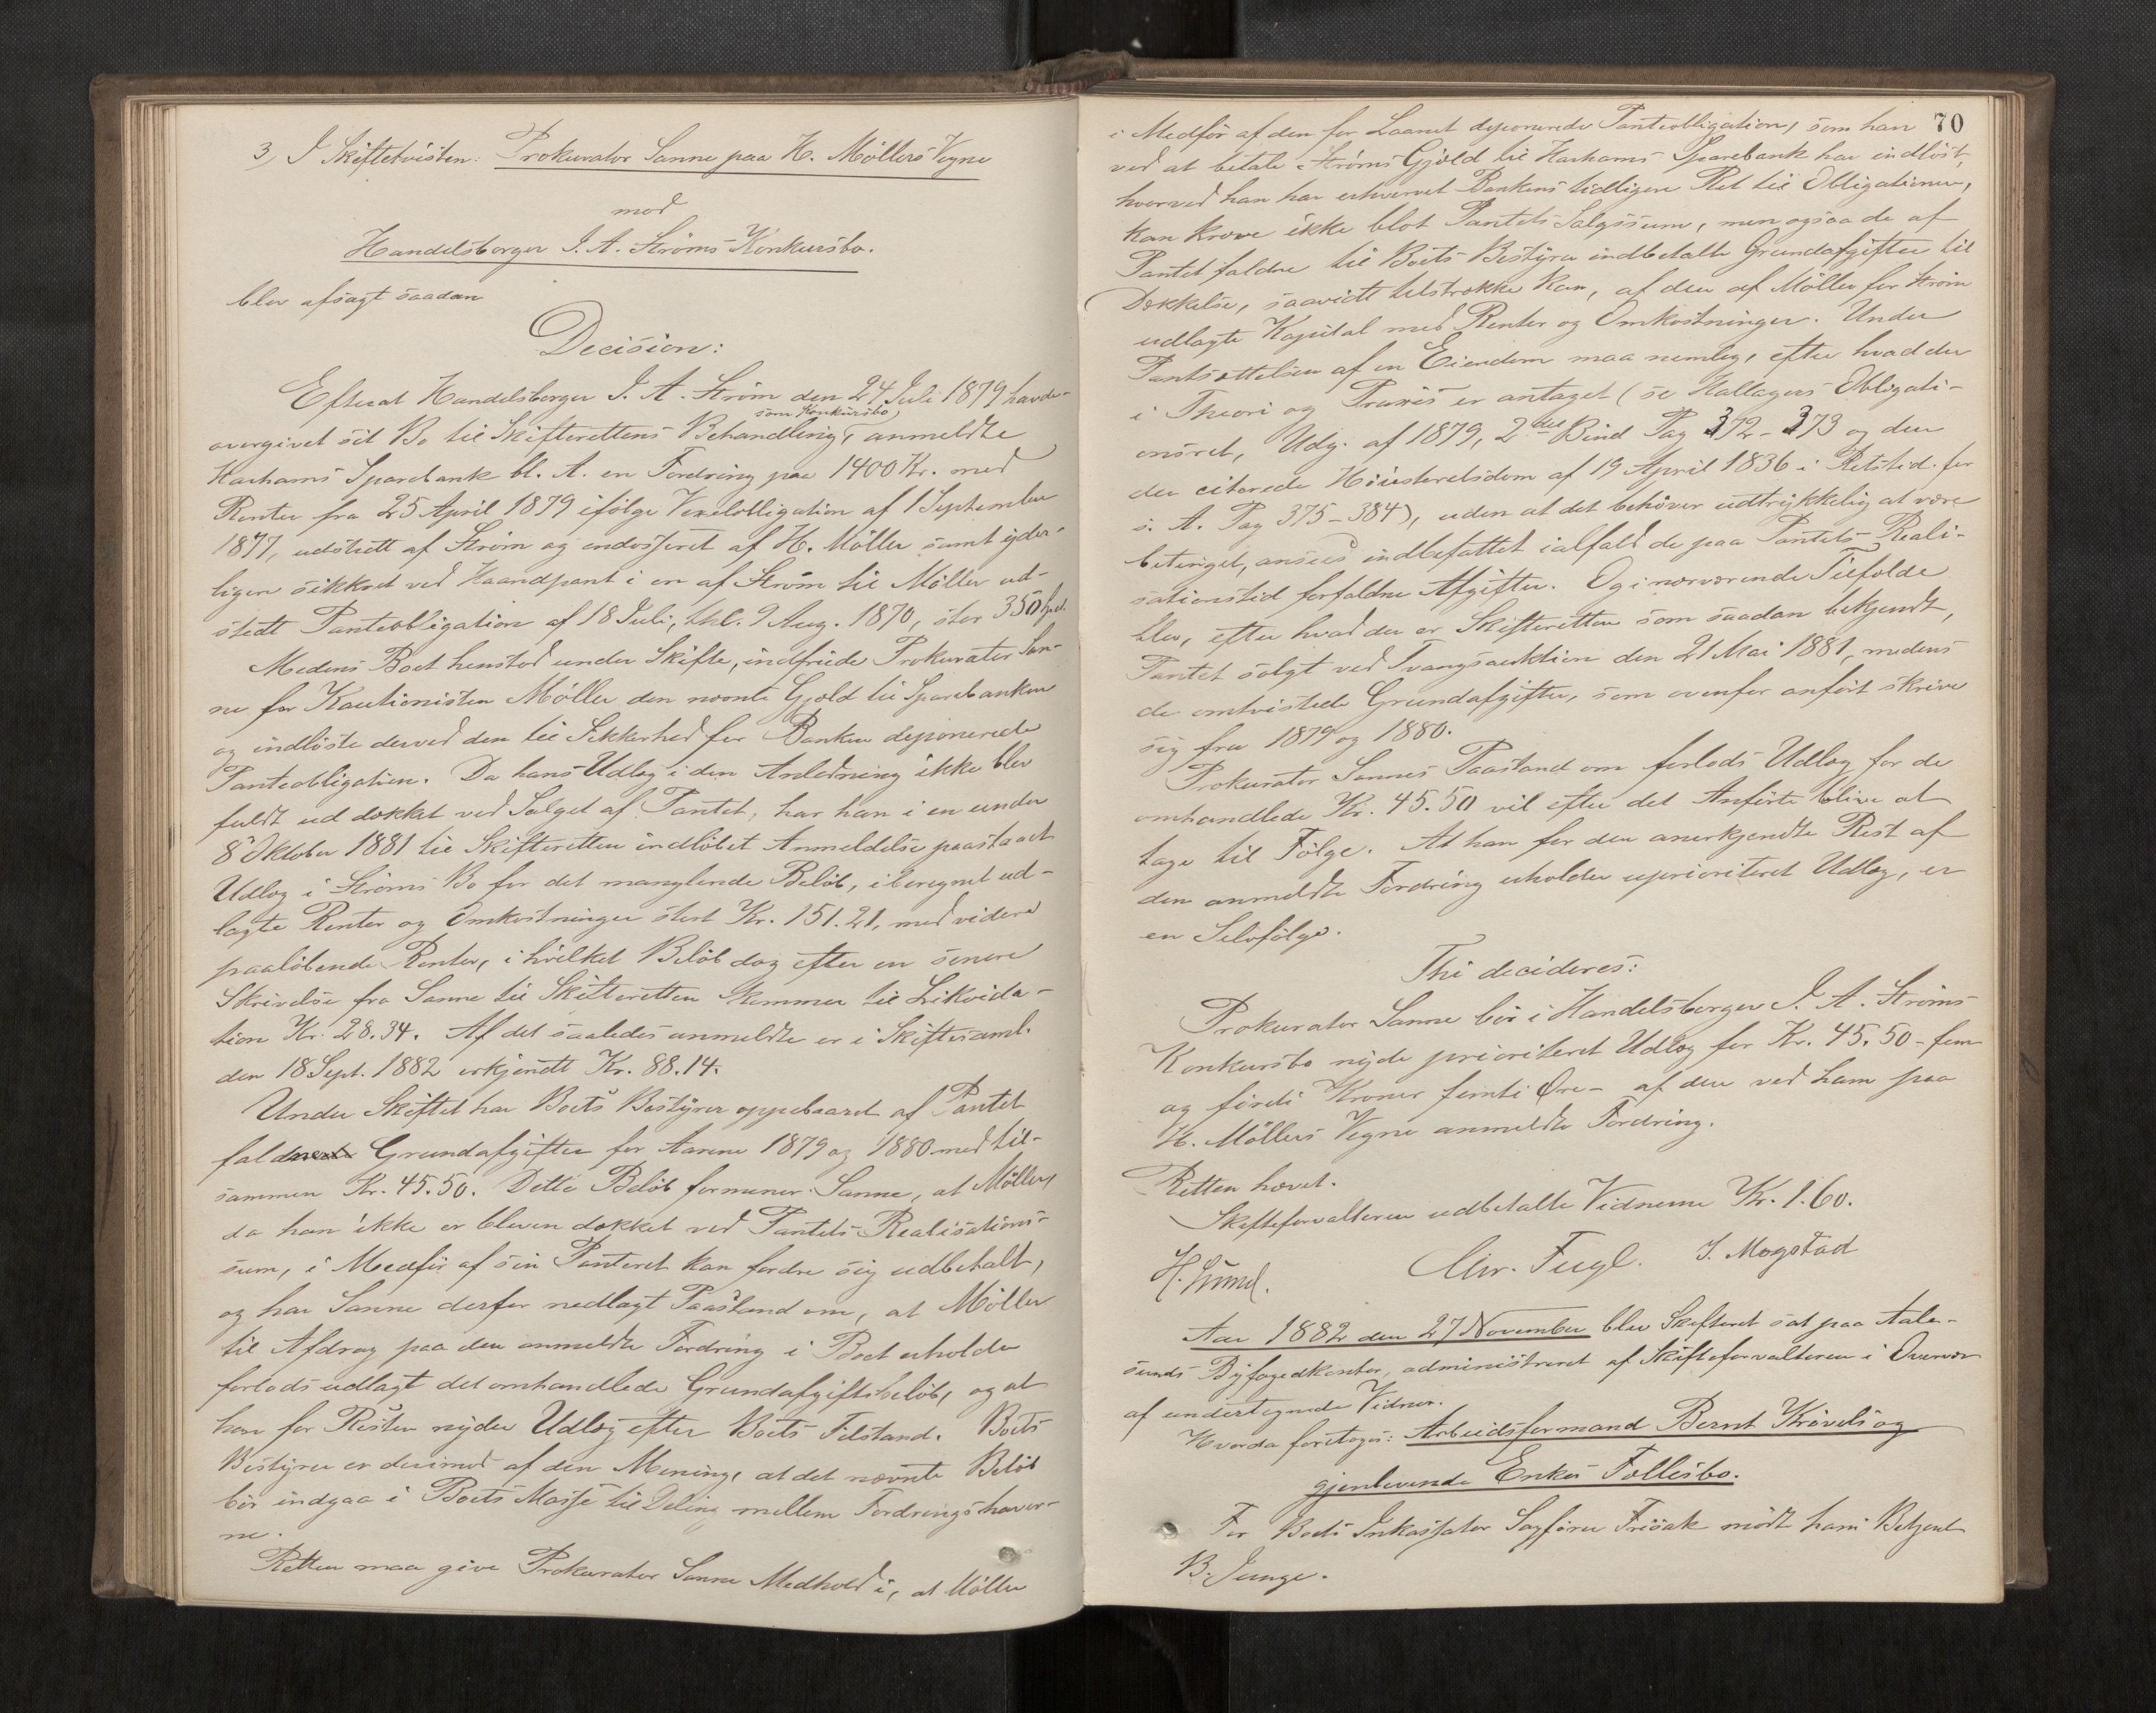 3, I Skiftetvisten: Prokurator Sanne paa H. Möllers Vegne
mod
Handelsborger I. A. Ströms Konkursbo.
blev afsagt saadan
Decision:
Efterat Handelsborger I. A. Ström den 24 Juli 1879 havde
som Konkursbo,
overgivet sit Bo til Skifterettens Behandling, anmeldte
Harhams Sparebank bl. A. en Fordring paa 1400 Kr. med
Renter fra 25 April 1879 ifölge Vexelobligation af 1 September
1877, udstedt af Ström og endosseret af H. Möller samt yder-
ligere sikkret ved Haandpant i en af Ström til Möller ud-
stedt Panteobligation af 18 Juli, thl. 9 Aug. 1870, stor 350 Spd.
Medens Boet henstod under Skifte, indfriede Prokurator San-
ne for Kautionisten Möller den nævnte Gjæld til Sparebanken
og indlöste derved den til Sikkerhed for Banken deponerede
Panteobligation. Da hans Udlæg i den Anledning ikke blev
fuldt ud dækket ved Salget af Pantet, har han i en under
8 Oktober 1881 til Skifteretten indlöbet Anmeldelse paastaaet
Udlæg i Ströms Bo for det manglende Belöb, iberegnet ud-
lagte Renter og Omkostninger stort Kr. 151.21, med videre
paalöbende Renter, i hvilket Belöb dog efter en senere
Skrivelse fra Sanne til Skifteretten kommer til Likvida-
tion Kr. 28.34. Af det saaledes anmeldte er i Skiftesaml.
den 18 Sept. 1882 erkjendt Kr. 88.14.
Under Skiftet har Boets Bestyrer oppebaaret af Pantet
faldne Grundafgifter for Aarene 1879 og 1880 med til-
sammen Kr. 45.50. Dette Belöb formener Sanne, at Möller,
da han ikke er bleven dækket ved Pantets Realisations-
sum, i Medför af sin Panteret kan fordre sig udbetalt,
og har Sanne derfor nedlagt Paastand om, at Möller
til Afdrag paa den anmeldte Fordring i Boet erholder
forlods udlagt det omhandlede Grundafgiftsbelöb, og at
han for Resten nyder Udlæg efter Boets Tilstand. Boets
Bestyrer er derimod af den Mening, at det nævnte Belöb
bör indgaa i Boets Masse til Deling mellem Fordringshaver-
ne.
Retten maa give Prokurator Sanne Medhold i, at Möller
70
i Medför af den for Laanet deponerede Panteobligation, som han
ved at betale Ströms Gjæld til Harhams Sparebank har indlöst,
hvorved han har erhvervet Bankens tidligere Ret til Obligationen,
kan kræve ikke blot Pantets Salgssum, men ogsaa de af
Pantet faldne til Boets Bestyrer indbetalte Grundafgifter til
Dækkelse, saavidt tilstrække kan, af den af Möller for Ström
udlagte Kapital med Renter og Omkostninger. Under
Pantsættelsen af en Eiendom maa nemlig, efter hvad der
i Theori og Praxis er antaget (se Hallagers Obligati-
onsret, Udg. af 1879, 2det Bind Pag 372-373 og den
der citerede Höiesteretsdom af 19 April 1836 i Retstid. for
s. A. Pag 375-384), uden at det behöver udtrykkelig at være
betinget, ansees indbefattet ialfald de paa Pantets Reali-
sationstid forfaldne Afgifter. Og i nærværende Tilfælde
blev, efter hvad der er Skifteretten som saadan bekjendt,
Pantet solgt ved Tvangsauktion den 21 Mai 1881, medens
de omtvistede Grundafgifter, som ovenfor anfört skrive
sig fra 1879 og 1880.
Prokurator Sannes Paastand om forlods Udlæg for de
omhandlede Kr. 45.50 vil efter det Anförte blive at
tage til Fölge. At han for den anerkjendte Rest af
den anmeldte Fordring erholder uprioriteret Udlæg, er
en Selvfölge.
Thi decideres:
Prokurator Sanne bör i Handelsborger I. A. Ströms
Konkursbo nyde prioriteret Udlæg for Kr. 45.50 - fem
og förti Kroner femti Øre - af den ved ham paa
H. Möllers Vegne anmeldte Fordring.
Retten hævet.
Skifteforvalteren udbetalte Vidnerne Kr. 1.60.
Chr. Fugl. I. Mogstad
Aar 1882 den 27 November blev Skifteret sat paa Aale-
sunds Byfogedkontor, administreret af Skifteforvalteren i Overvær
af undertegnede Vidner.
Hvorda foretoges: Arbeidsformand Bernt Krövels og
gjenlevende Enkes Fællesbo.
For Boets Inkassator Sagförer Friöak mödt hans Betjent
B. Junge.